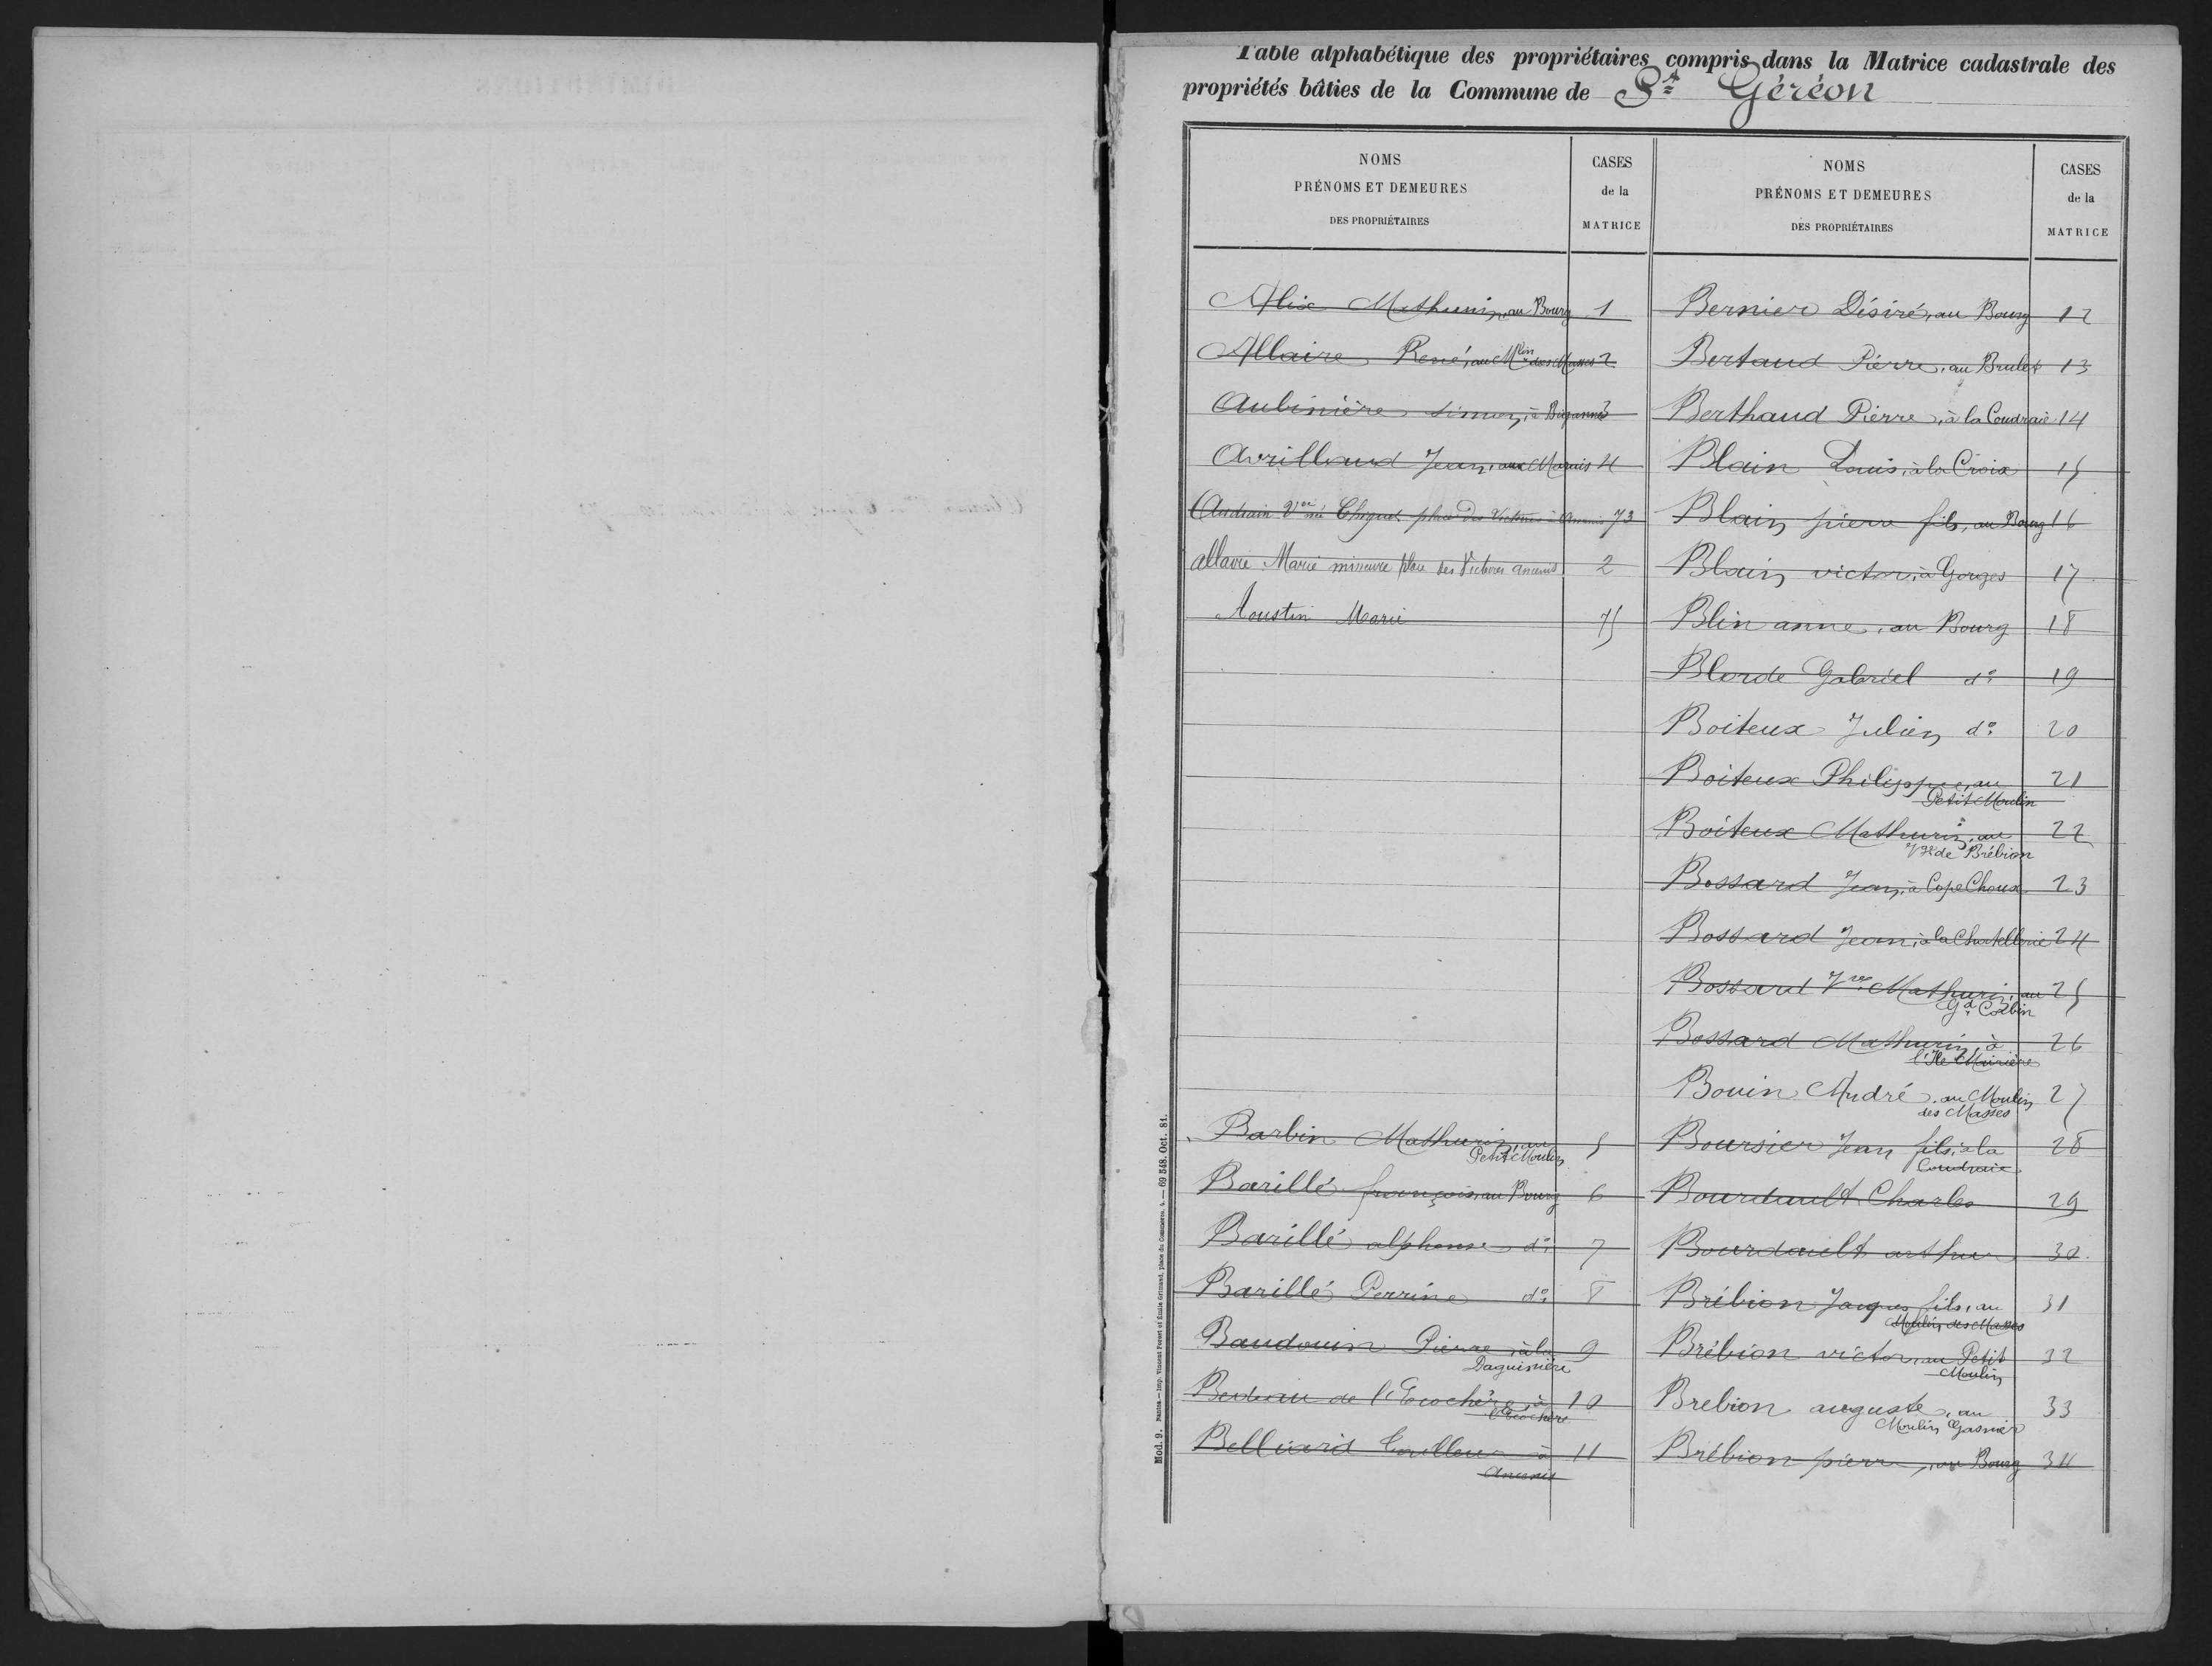 Table alphabétique des propriétaires compris dans la Matrice cadastrale des
propriétés bâties de la Commune de St Géréon
NOMS
PRÉNOMS ET DEMEURES
DES PROPRIÉTAIRES
CASES
de la
MATRICE
Alix Mathurin, au Bourg 1
Allaire René, au Mlin des Masses 2
Aubinière Simon, à 3
Avrillaud Jean, aux Marais 4
Audrain Vve née place des Victoires à Ancenis 73
allaire Marie mineure place des Victoires ancenis 2
Aoustin Marie 75
Barbin Mathurin, au
Petit Moulin 5
Barillé françois, au Bourg 6
Barillé alphonse do 7
Barillé Perrine do 8
Baudouin Pierre, à la
Daguinière 9
Bedeau de l'Ecochère, à
l'Ecochère 10
Belliard à
Ancenis 11
NOMS
PRÉNOMS ET DEMEURES
DES PROPRIÉTAIRES
CASES
de la
MATRICE
Bernier Désiré, au Bourg 12
Bertaud Pierre, au Brulet 13
Berthaud Pierre, à la Coudraie 14
Blain Louis, à la Croix 15
Blain pierre fils, au Bourg 16
Blain victor, à Gorges 17
Blin anne, au Bourg 18
Blorde Gabriel do 19
Boiteux Julien do 20
Boiteux Philippe, au
Petit Moulin 21
Boiteux Mathurin, au
Vge de Brébion 22
Bossard Jean, à Cope Choux 23
Bossard Jean, à la Chatellerie 24
Bossard Vve Mathurin, au
Gd Corbin 25
Bossard Mathurin, à
l'Ile Mairière 26
Bouin André, au Moulin
des Masses 27
Boursier Jean fils, à la
Coudraie 28
Bourdault Charles 29
Bourdault arthur 30
Brébion Jacques fils, au
Moulin des Masses 31
Brébion victor, au Petit
Moulin 32
Brebion auguste, au
Moulin Gasnier 33
Brébion pierre, au Bourg 34
Mod. 9. Nantes.—Imp. Vincent Forest et Émile Grimaud, place du Commerce, 4. — 69 548. Oct. 81.